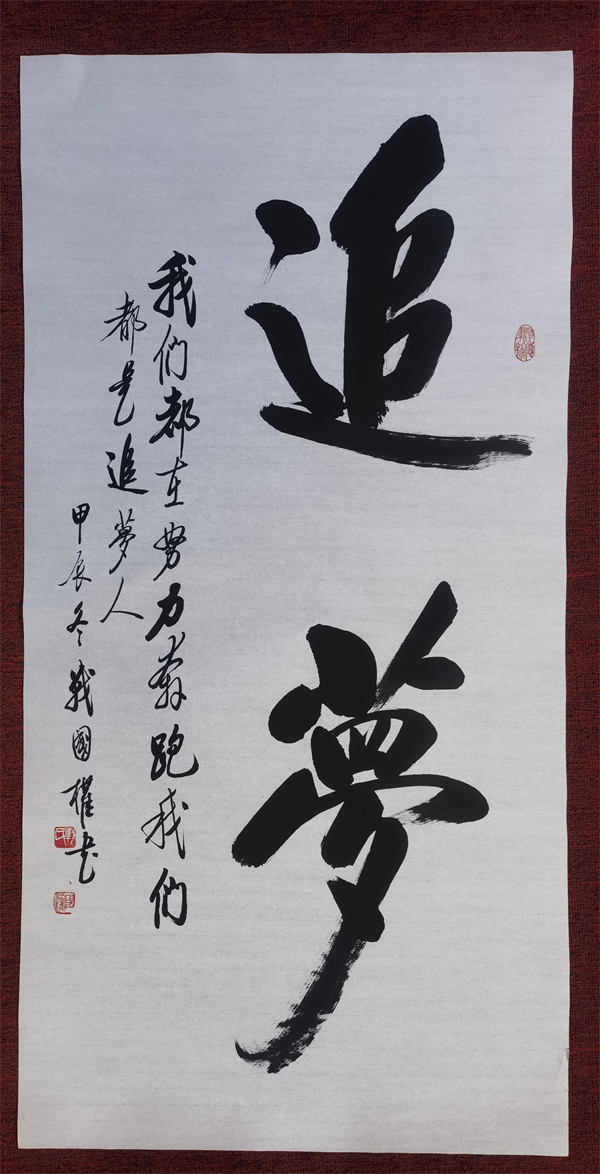 追夢
我们都在努力奔跑我们
都是追夢人
甲辰冬戰國權书